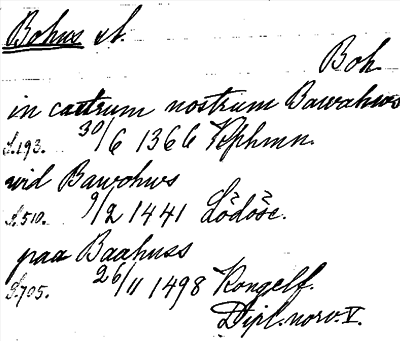 Bohus st.
Boh.
in castrum nostrum Bawahws
S.193. 30/6 1366 Kphmn.
wid Bawohws
S.510. 9/2 1441 Lödöse.
paa Baahuss
S.705. 26/11 1498 Kongelf.
Dipl. norv. V.